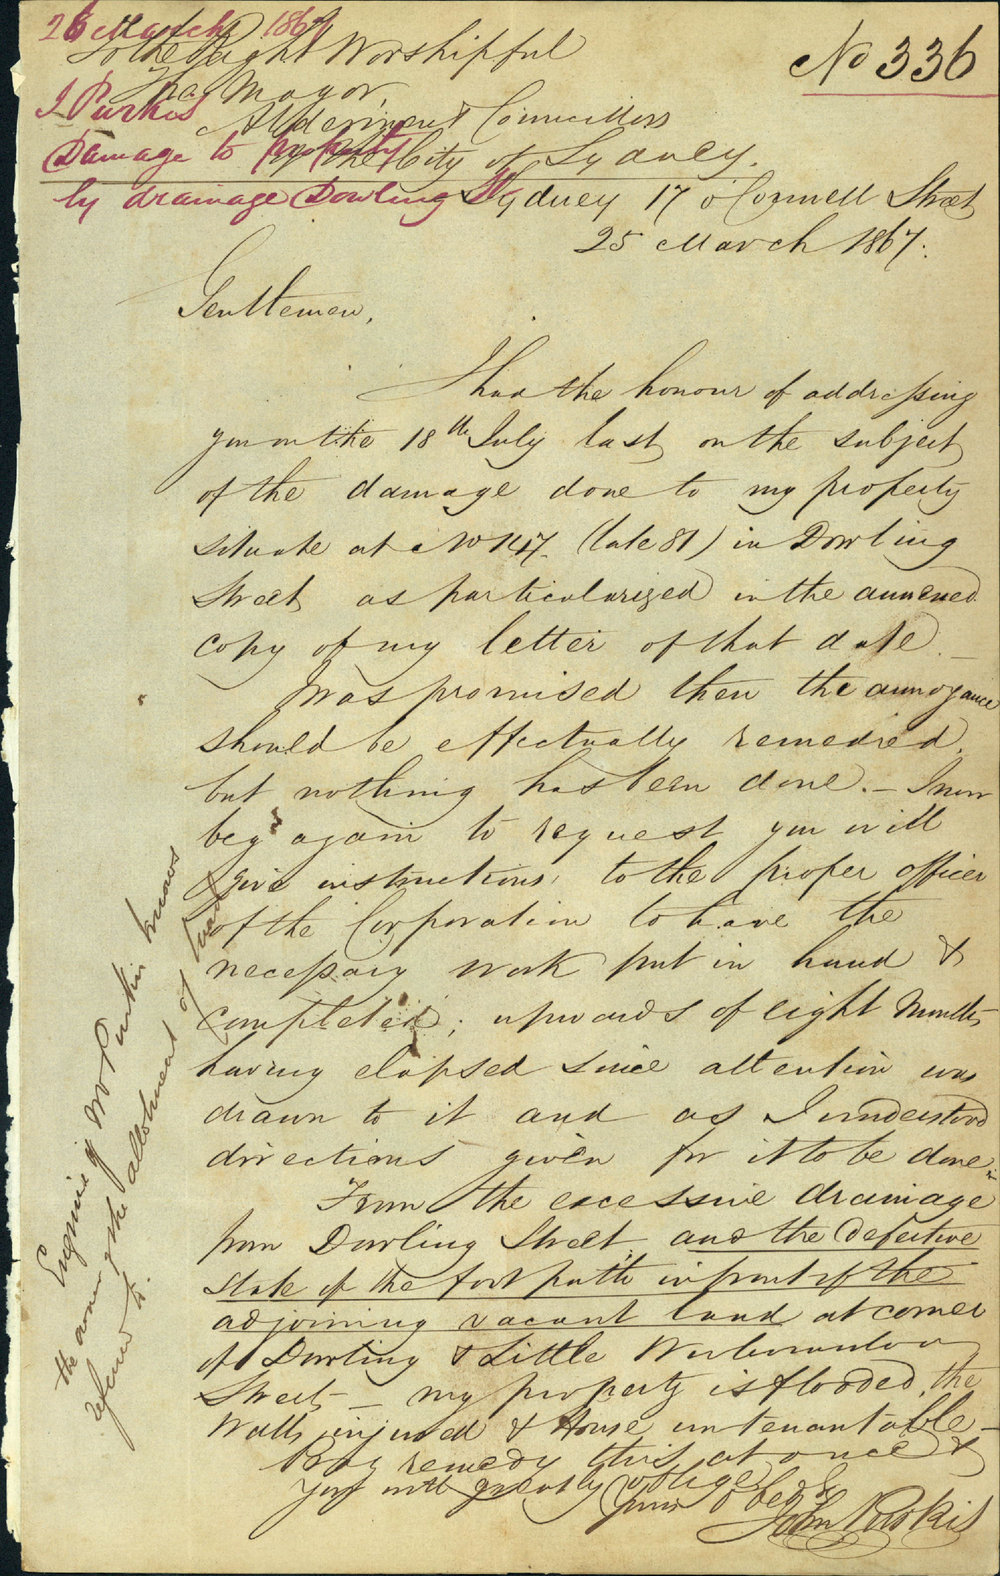 26 March 1867
J Purkis
Damage to property
by drainage Dowling St
No 336
To the Right Worshipful
The Mayor,
Aldermen & Councillors
of the City of Sydney.
Sydney 17 o'Connell Street
25 March 1867.
Gentlemen,
I had the honour of addressing
you on the 18th July last on the subject
of the damage done to my property
situate at No 147 (late 81) in Dowling
Street as particularized in the annexed
copy of my letter of that date. —
Was promised then the annoyance
should be effectually remedied,
but nothing has been done. — I now
beg again to request you will
give instructions to the proper officer
of the Corporation to have the
necessary work put in hand &
completed; upwards of eight Months
having elapsed since attention was
drawn to it and as I understood
directions given for it to be done
From the excessive drainage
from Dowling Street, and the defective
state of the foot path in front of the
adjoining vacant land at corner
of Dowling & Little Woolloomooloo
Street — my property is flooded, the
Walls injured & House untenantable —
Pray remedy this at once &
you will greatly oblige
Yours obedly
John Purkis
Enquire if Mr Purkis knows
the owner of the allotment of land
referred to.